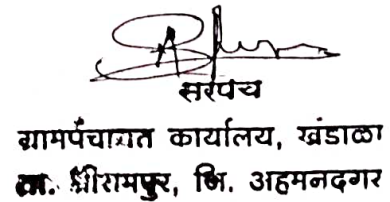 सरपंच
ग्रामपंचायत कार्यालय, खंडाळा
ता. श्रीरामपुर, जि. अहमदनगर